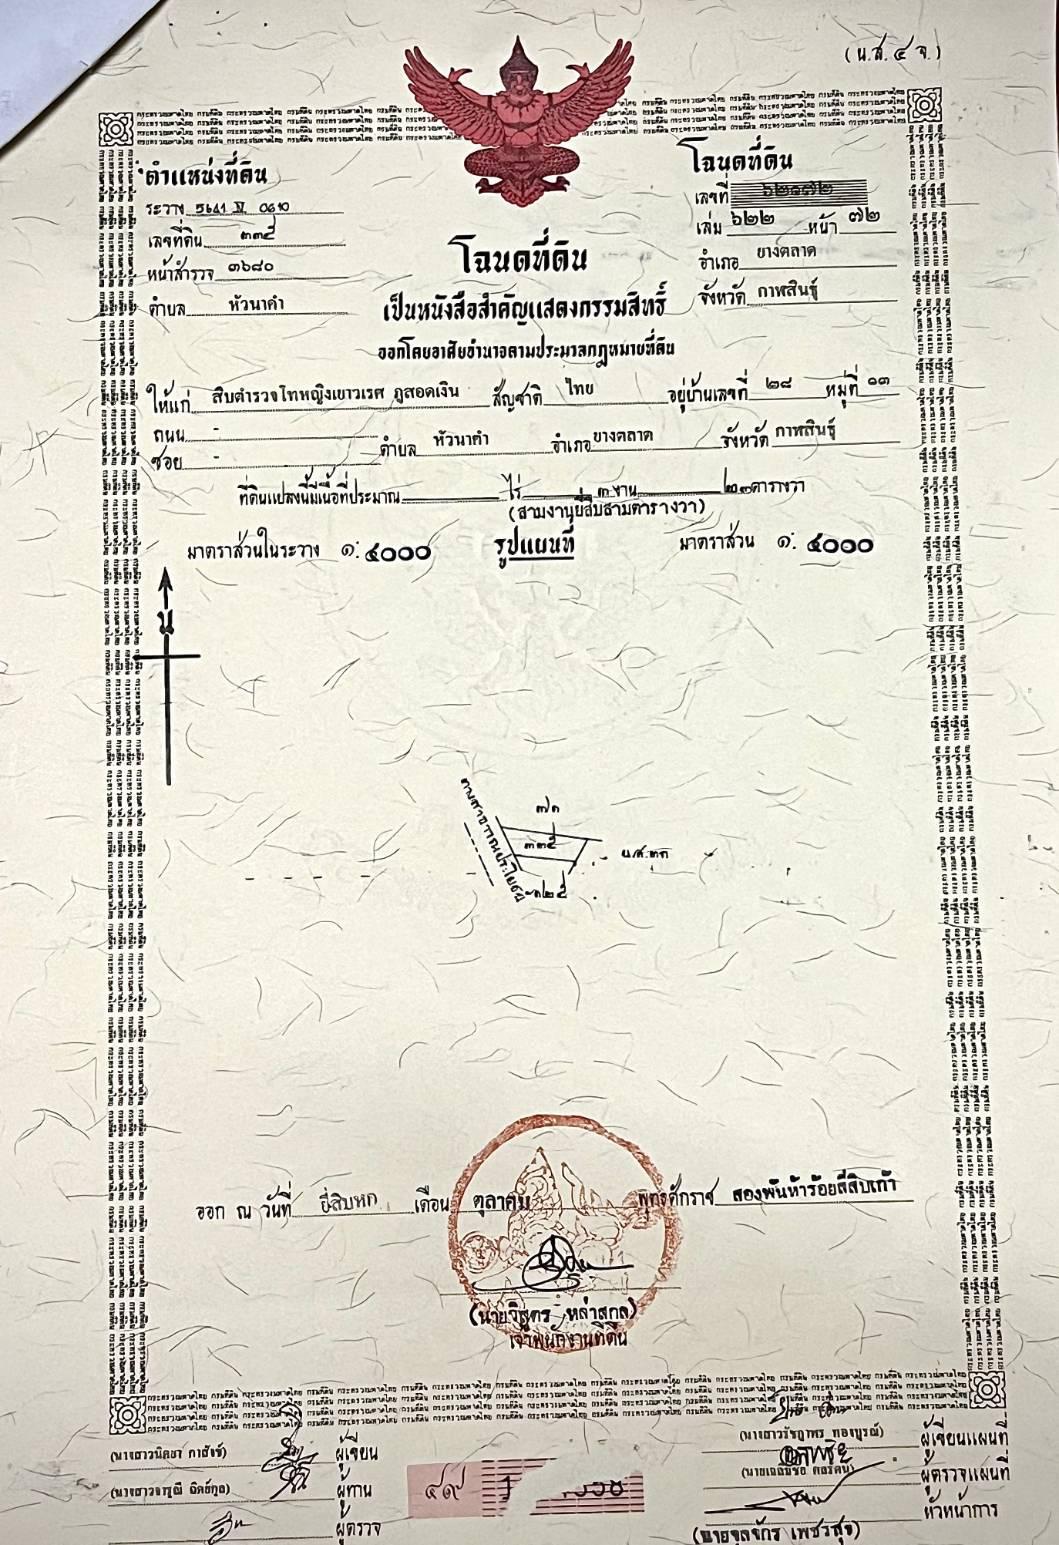 (น.ส. ๔ จ.)
ตำแหน่งที่ดิน
ระวาง 5641 IV 0610
เลขที่ดิน ๓๓๕
หน้าสำรวจ ๓๖๘๐
ตำบล หัวนาคำ
โฉนดที่ดิน
เลขที่ ๖๒๑๗๒
เล่ม ๖๒๒ หน้า ๗๒
อำเภอ ยางตลาด
จังหวัด กาฬสินธุ์
โฉนดที่ดิน
เป็นหนังสือสำคัญแสดงกรรมสิทธิ์
ออกโดยอาศัยอำนาจตามประมวลกฎหมายที่ดิน
ให้แก่ สิบตำรวจโทหญิงเยาวเรศ ภูสอดเงิน สัญชาติ ไทย อยู่บ้านเลขที่ ๒๘ หมู่ที่ ๑๓
ถนน -
ซอย - ตำบล หัวนาคำ อำเภอ ยางตลาด จังหวัด กาฬสินธุ์
ที่ดินแปลงนี้มีเนื้อที่ประมาณ ไร่ ๓ งาน ๒๓ ตารางวา
(สามงานยี่สิบสามตารางวา)
มาตราส่วนในระวาง ๑: ๔๐๐๐ รูปแผนที่ มาตราส่วน ๑: ๔๐๐๐
น
ทางสาธารณประโยชน์
๗๓
๓๓๕
น.ส.๓ก
๓๒๕
ออก ณ วันที่ ยี่สิบหก เดือน ตุลาคม พุทธศักราช สองพันห้าร้อยสี่สิบเก้า
(นายวิสูตร หล่าสกุล)
เจ้าพนักงานที่ดิน
ผู้เขียน
ผู้ทาน
ผู้ตรวจ
๔๙
ผู้เขียนแผนที่
ผู้ตรวจแผนที่
หัวหน้าการ
(นายจุลจักร เพชรสุข)